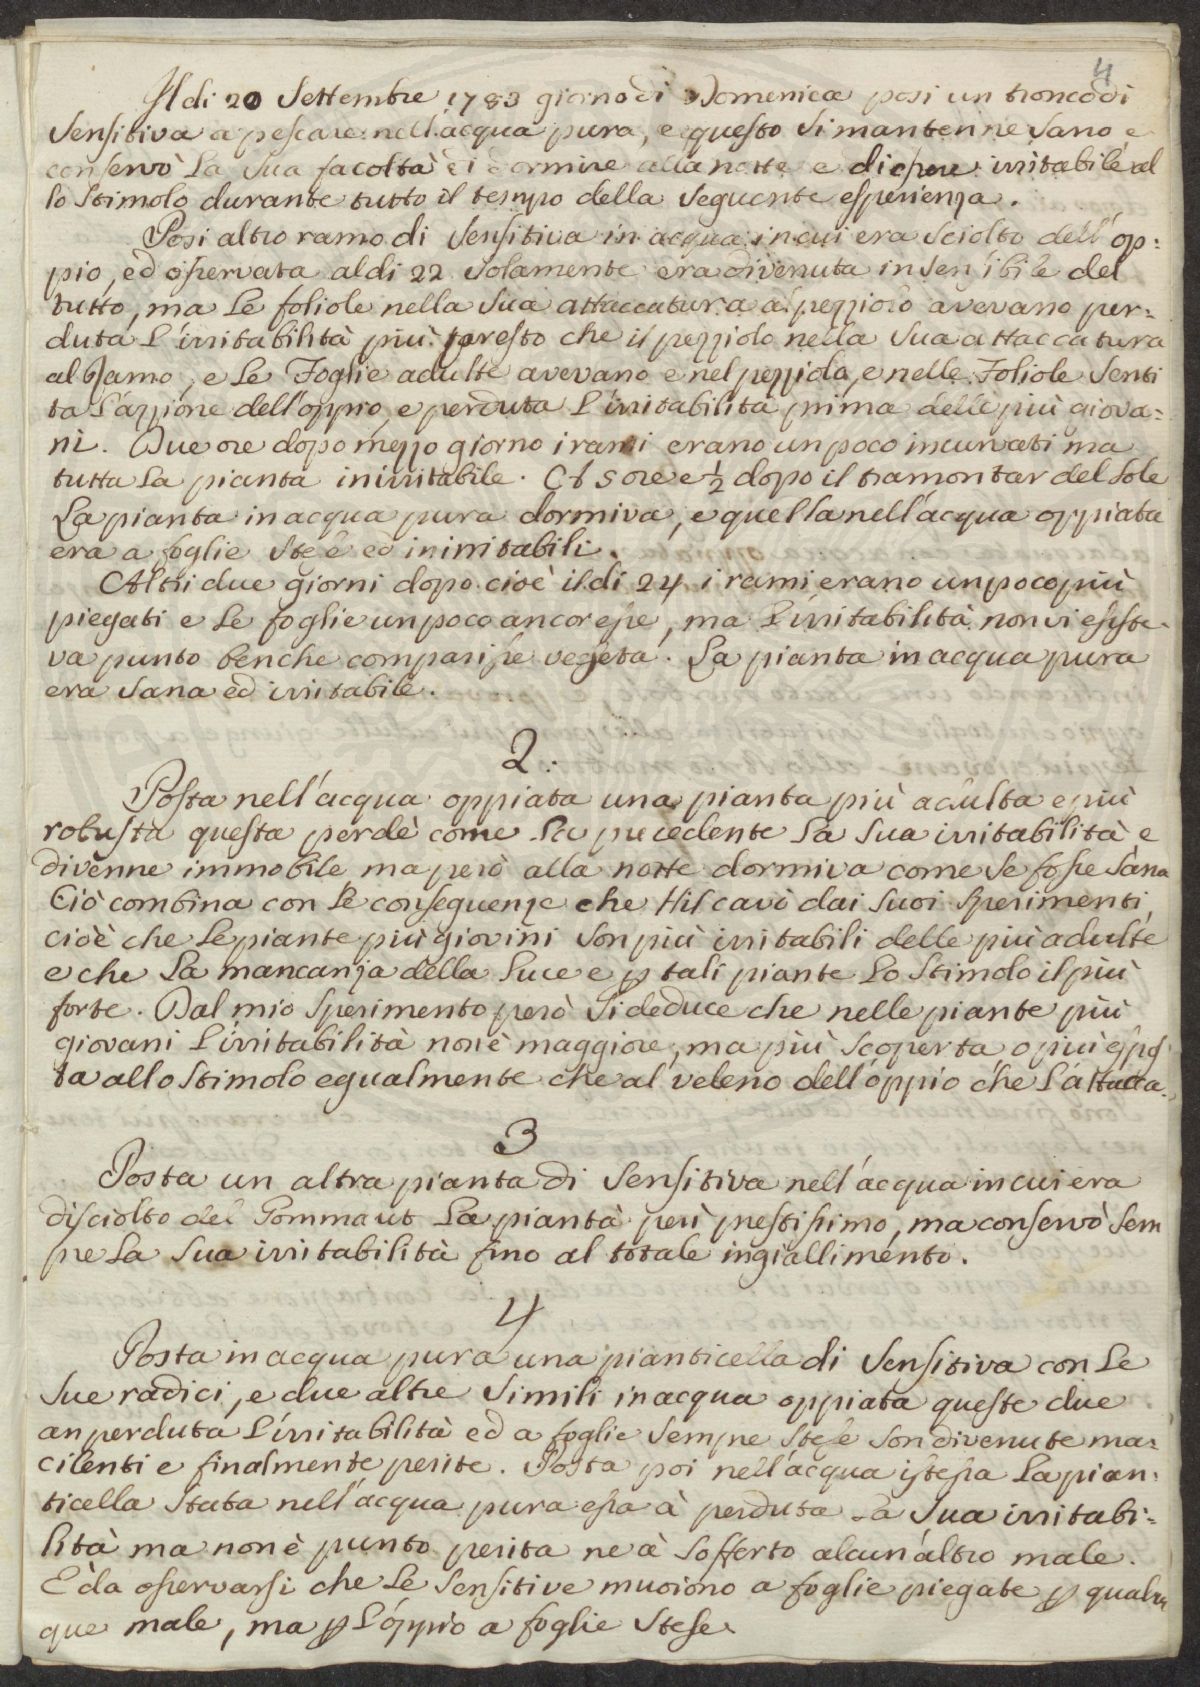 4
Il di 20 Settembre 1783 giorno di Domenica posi un tronco di
Sensitiva a pescare nell'acqua pura, e questo si mantenne sano e
conservò la sua facoltà di dormire alla notte e di essere irritabile al
lo stimolo durante tutto il tempo della seguente esperienza.
Posi altro ramo di Sensitiva in acqua in cui era sciolto dell'op=
pio, ed osservata al di 22 solamente era divenuta insensibile del
tutto, ma le foliole nella sua attaccatura al pezziolo avevano per=
duta l'irritabilità più presto che il pezziolo nella sua attaccatura
al Ramo, e le Foglie adulte avevano e nel pezziolo, e nelle Foliole senti
ta l'azzione dell'oppio, e perduta l'irritabilità prima delle più giova=
ni. Due ore dopo mezzo giorno i rami erano un poco incurvati ma
tutta la pianta inirritabile. A 5 ore e ½ dopo il tramontar del sole
La pianta in acqua pura dormiva, e quella nell'acqua oppiata
era a foglie stese ed inirritabili.
Altri due giorni dopo cioè il di 24 i rami erano un poco più
piegati e le foglie un poco ancor esse, ma l'irritabilità non vi esiste=
va punto benche comparisse vegeta. La pianta in acqua pura
era sana ed irritabile.
2.
Posta nell'acqua oppiata una pianta più adulta e più
robusta questa perdè come la precedente la sua irritabilità e
divenne immobile ma però alla notte dormiva come se fosse sana
Ciò combina con le conseguenze che Hil cavò dai suoi sperimenti,
cioè che le piante più giovini son più irritabili delle più adulte
e che la mancanza della luce e p tali piante lo stimolo il più
forte. Dal mio sperimento però si deduce che nelle piante più
giovani l'irritabilità non è maggiore, ma più scoperta o più espos
ta allo stimolo egualmente che al veleno dell'oppio che l'attacca.
3
Posta un altra pianta di Sensitiva nell'acqua in cui era
disciolto del Gommaut la pianta perì prestissimo, ma conservò sem
pre la sua irritabilità fino al totale ingiallimento.
4
Posta in acqua pura una pianticella di Sensitiva con le
sue radici, e due altre simili in acqua oppiata queste due
an perduta l'irritabilità ed a foglie sempre stese son divenute ma=
cilenti e finalmente perite. Posta poi nell'acqua istessa la pian=
ticella stata nell'acqua pura essa à perduta la sua irritabi=
lità ma non è punto perita ne à sofferto alcun'altro male.
E da osservarsi che le sensitive muoiono a foglie piegate p qualun
que male, ma p l'oppio a foglie stese.